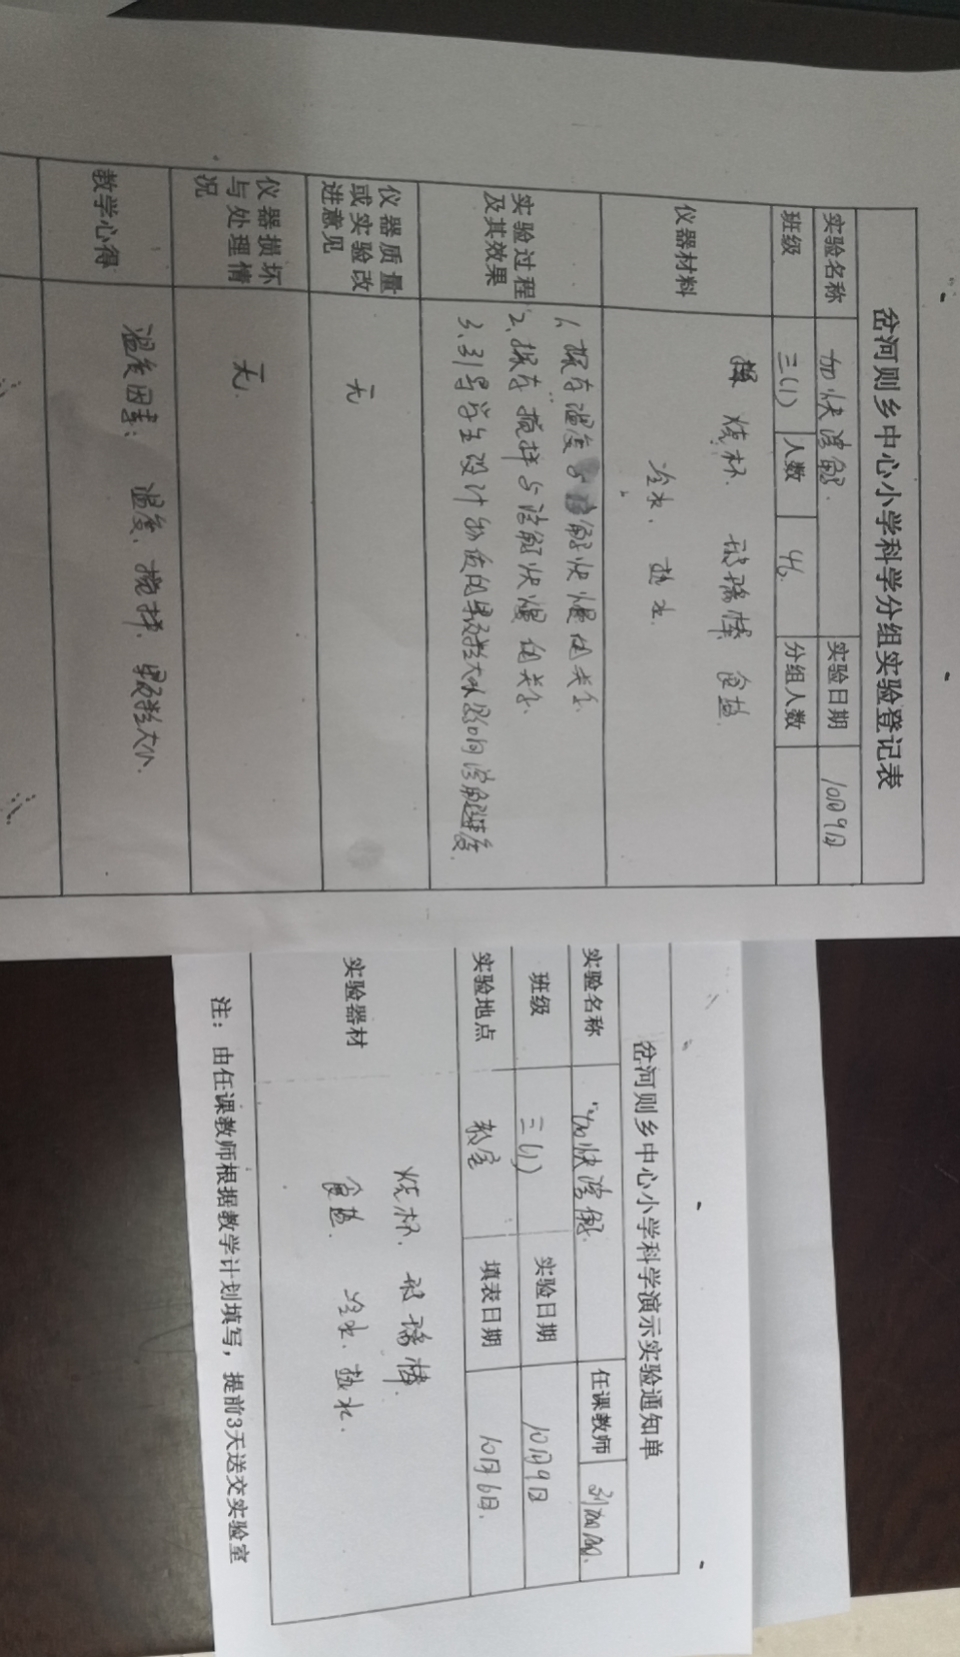 岔河则乡中心小学科学分组实验登记表
实验名称 加快溶解. 实验日期 10月9日
班级 三(1) 人数 46. 分组人数
仪器材料 烧杯. 玻璃棒. 食盐.
冷水. 热水.
实验过程及其效果
1、探存温度与溶解快慢的关系.
2、探存搅拌与溶解快慢的关系.
3、引导学生设计物质的颗粒大小影响溶解速度.
仪器质量或实验改进意见 无
仪器损坏与处理情况 无.
教学心得 温度因素: 温度. 搅拌. 颗粒大小.
岔河则乡中心小学科学演示实验通知单
实验名称 "加快溶解. 任课教师
班级 三(1) 实验日期 10月9日
实验地点 教室 填表日期 10月6日.
实验器材 烧杯. 玻璃棒.
食盐. 冷水. 热水.
注：由任课教师根据教学计划填写，提前3天送交实验室